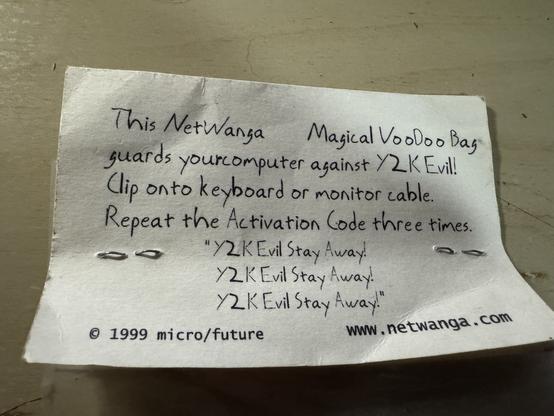 This NetWanga Magical VooDoo Bag
guards yourcomputer against Y2K Evil!
Clip onto keyboard or monitor cable.
Repeat the Activation Code three times.
"Y2K Evil Stay Away!
Y2K Evil Stay Away!
Y2K Evil Stay Away!"
© 1999 micro/future
www.netwanga.com